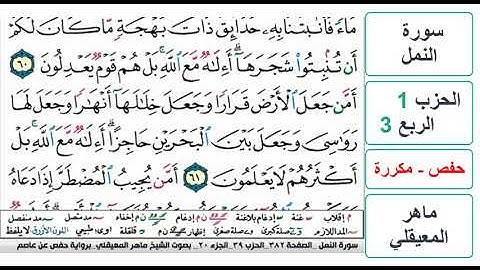 مَاءً فَأَنۢبَتْنَا بِهِۦ حَدَآئِقَ ذَاتَ بَهْجَةٍ مَّا كَانَ لَكُمْ
أَن تُنۢبِتُوا۟ شَجَرَهَآ ۗ أَءِلَٰهٌ مَّعَ ٱللَّهِ ۚ بَلْ هُمْ قَوْمٌ يَعْدِلُونَ ٦٠
أَمَّن جَعَلَ ٱلْأَرْضَ قَرَارًا وَجَعَلَ خِلَٰلَهَآ أَنْهَٰرًا وَجَعَلَ لَهَا
رَوَٰسِىَ وَجَعَلَ بَيْنَ ٱلْبَحْرَيْنِ حَاجِزًا ۗ أَءِلَٰهٌ مَّعَ ٱللَّهِ ۚ بَلْ
أَكْثَرُهُمْ لَا يَعْلَمُونَ ٦١ أَمَّن يُجِيبُ ٱلْمُضْطَرَّ إِذَا دَعَاهُ
سورة النمل.. الصفحة ٣٨٢ ..الحزب ٣٩ ..الجزء ٢٠ .. بصوت الشيخ ماهر المعيقلي.. برواية حفص عن عاصم
سورة
النمل
الحزب 1
الربع 3
حفص - مكررة
ماهر
المعيقلي